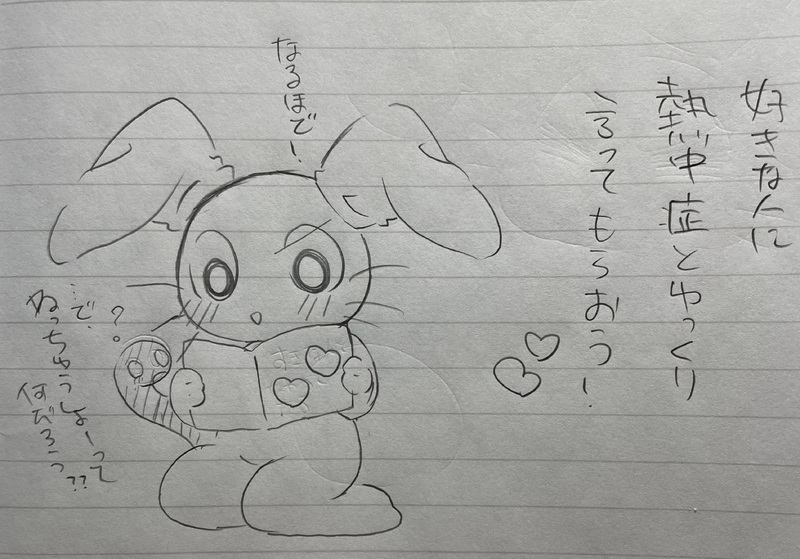 好きな人に
熱中症とゆっくり
言ってもらおう！
なるほで！
？
…で、
ねっちゅうしょーって
何だろう??